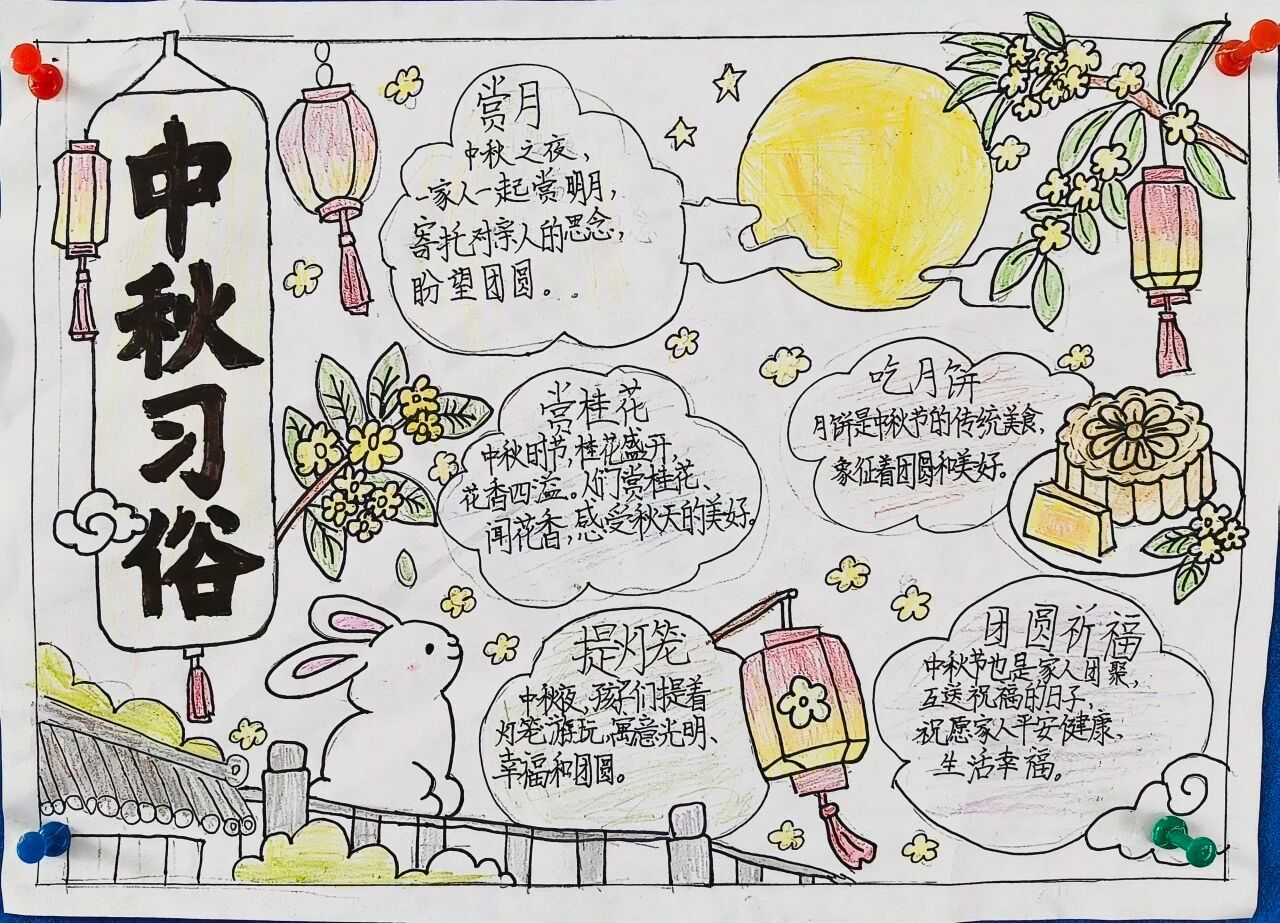 中秋习俗
赏月
中秋之夜，
一家人一起赏明月，
寄托对亲人的思念，
盼望团圆。
赏桂花
中秋时节，桂花盛开，
花香四溢。人们赏桂花、
闻花香，感受秋天的美好。
吃月饼
月饼是中秋节的传统美食，
象征着团圆和美好。
提灯笼
中秋夜，孩子们提着
灯笼游玩，寓意光明、
幸福和团圆。
团圆祈福
中秋节也是家人团聚，
互送祝福的日子，
祝愿家人平安健康、
生活幸福。